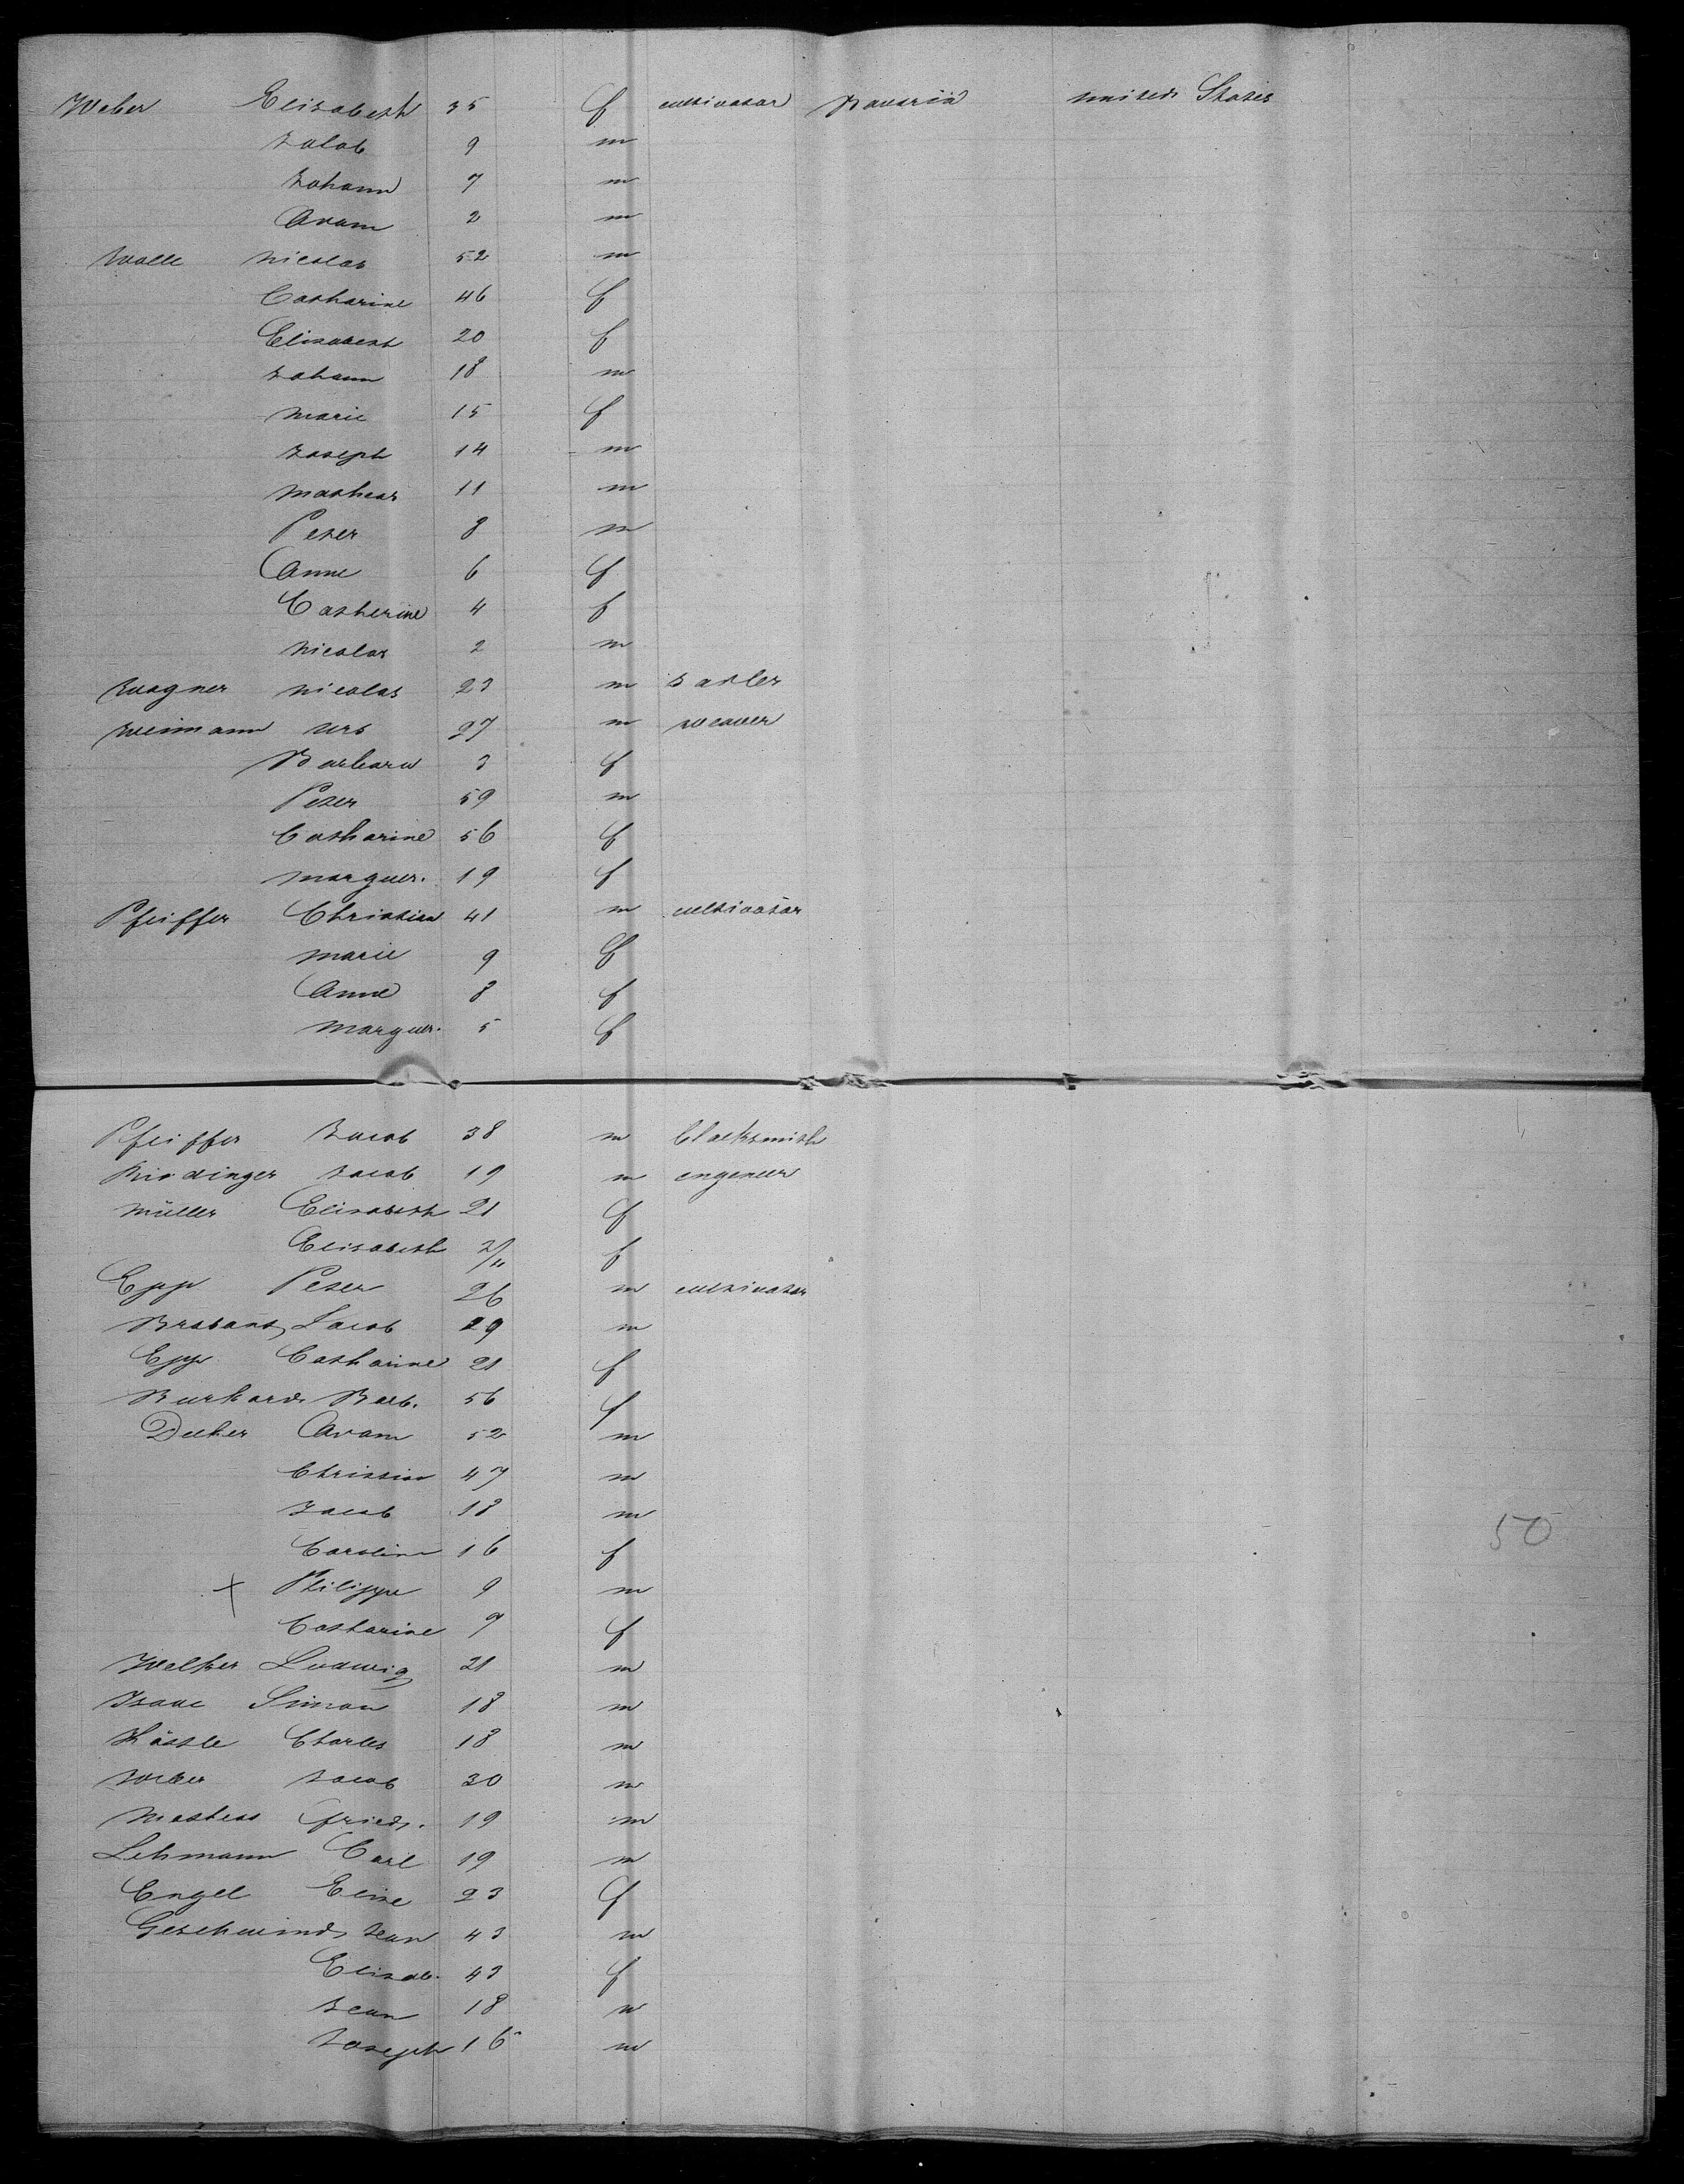 Weber Elisabeth 35 f cultivator Bavaria united States
Jacob 9 m
Johann 7 m
Adam 2 m
Walle Nicolas 52 m
Catharine 46 f
Elisabeth 20 f
Johann 18 m
Marie 15 f
Joseph 14 m
Mathear 11 m
Peter 8 m
Anne 6 f
Catherine 4 f
Nicolas 2 m
Wagner Nicolas 23 m
Weimann Urs 27 m weaver
Barbara 3 f
Peter 59 m
Catharine 56 f
Marguer. 19 f
Pfeiffer Christian 41 m cultivator
Marie 9 f
Anne 8 f
Marguer. 5 f
Pfeiffer Jacob 38 m blacksmith
Riedinger Jacob 19 m engeneer
Müller Elisabeth 21 f
Elisabeth 2/11 f
Epp Peter 26 m cultivator
Brabant Jacob 29 m
Epp Catharine 21 f
Burkard Barb. 56 f
Decker Adam 52 m
Christian 47 m
Jacob 18 m
Carolin 16 f
+ Philippe 9 m
Catharine 7 f
Welker Ludwig 21 m
Isaac Simon 18 m
Hässle Charles 18 m
Jacob 30 m
Mathess Fried. 19 m
Lehmann Carl 19 m
Engel Elise 23 f
Geschwind Jean 43 m
Elisab. 43 f
Jean 18 m
Joseph 16 m
50